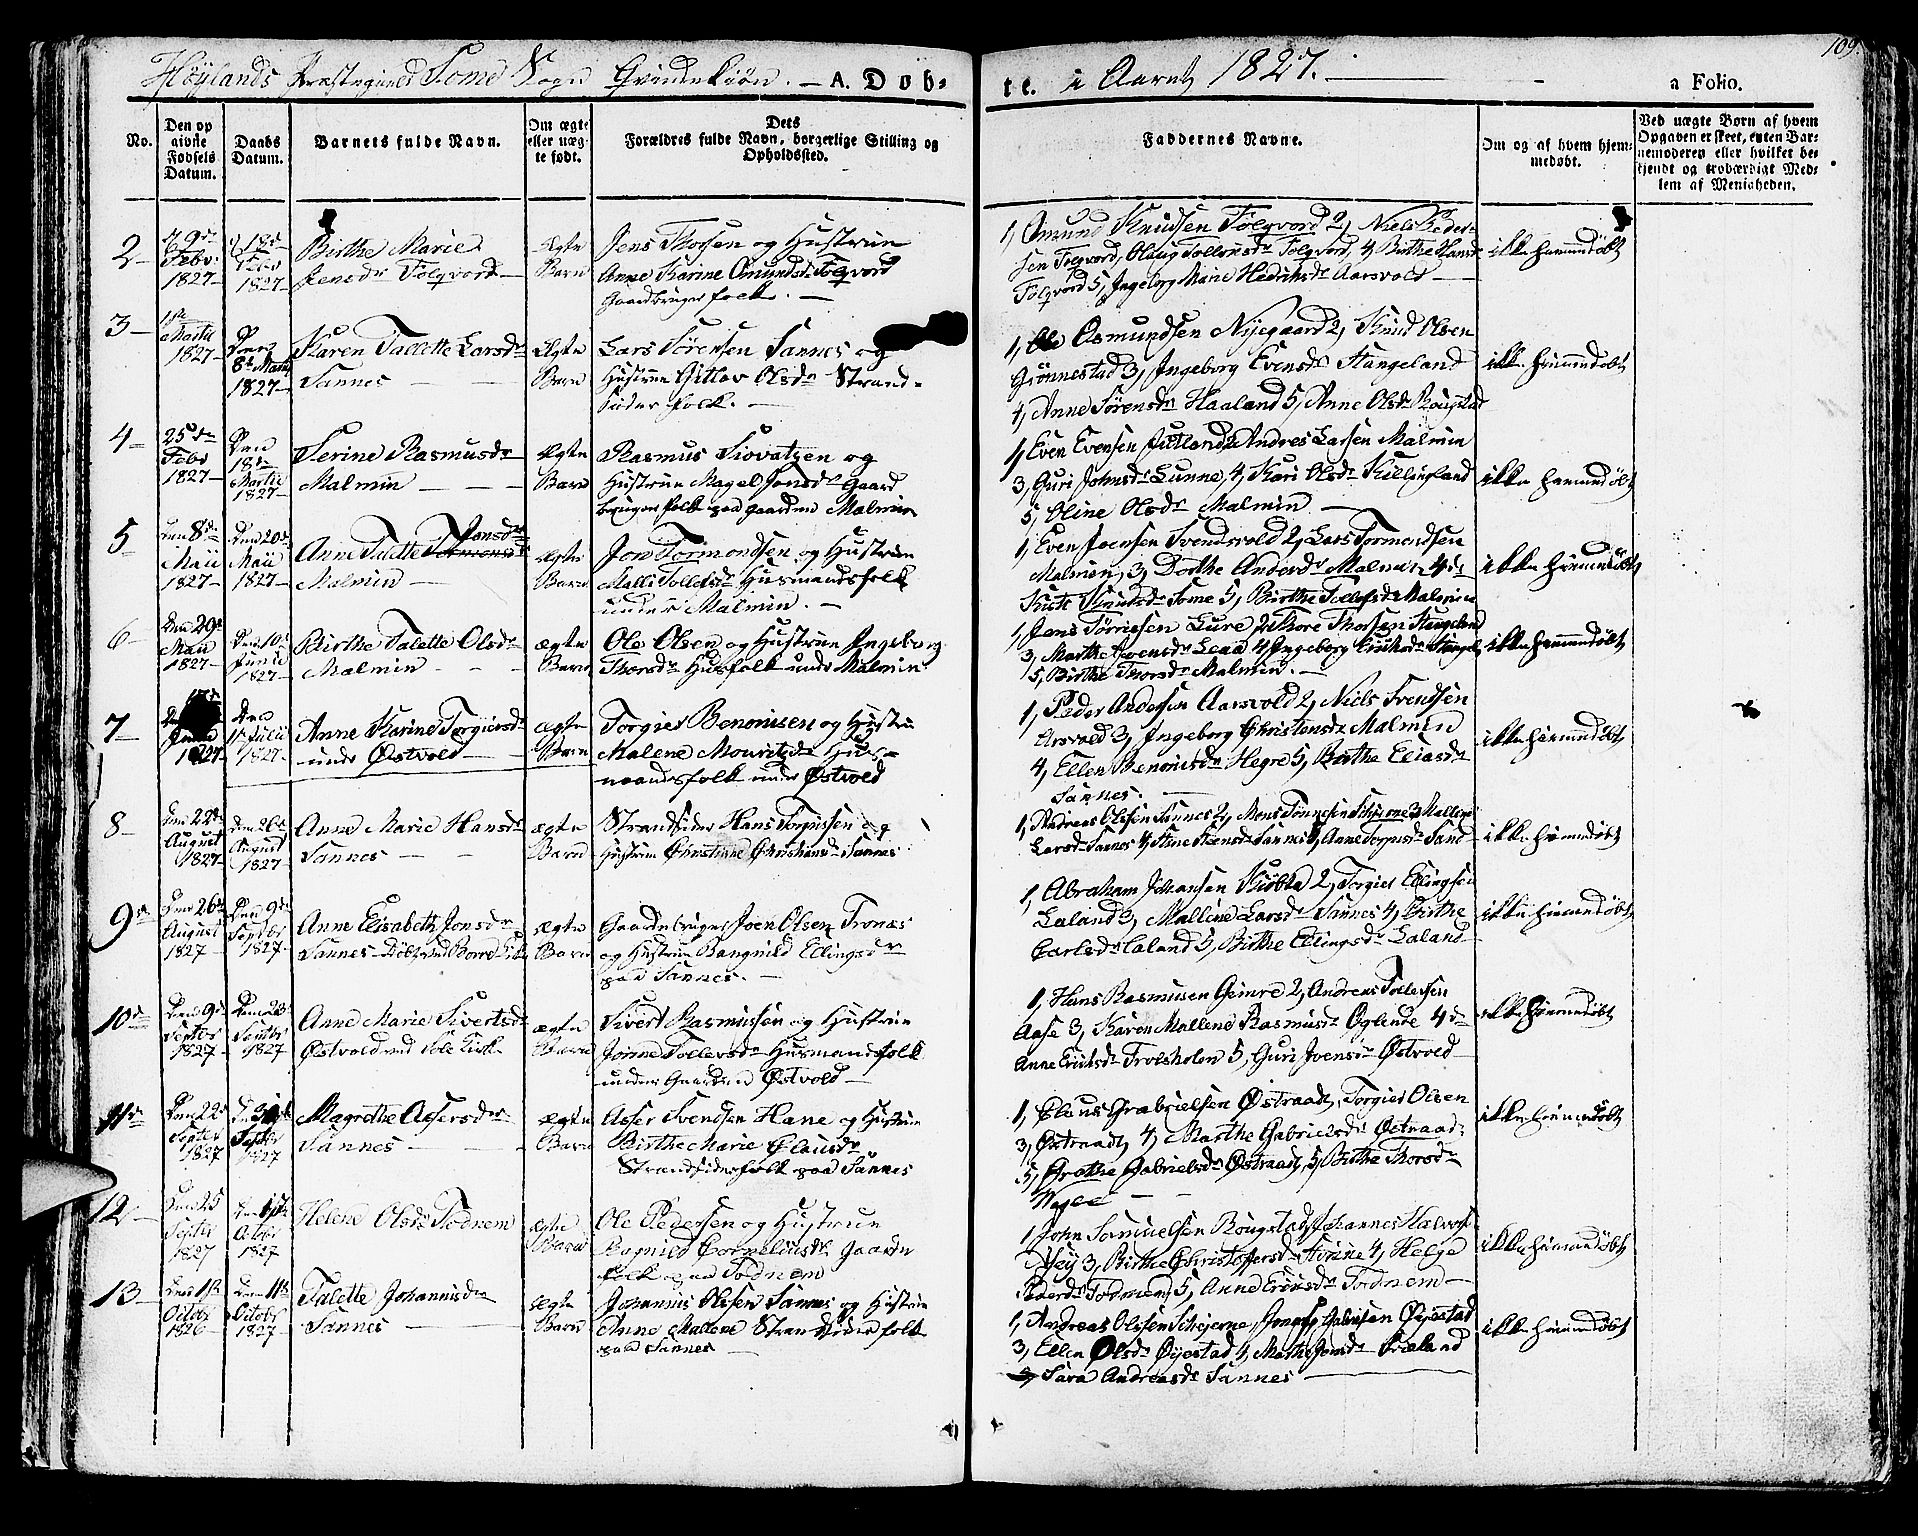 109.
Höylands Præstegield Some Sogn Qvindekiøn. — A. Døb-
te. i Aaret 1827. — a Folio.
No.
Den op
givne
Fødsels
Datum.
Daabs
Datum.
Barnets fulde Navn.
Om ægte
eller uæg-
te født.
Dets
Forældres fulde Navn, borgerlige Stilling og
Opholdssted.
Faddernes Navne.
Om og af hvem hjem-
medøbt.
Ved uægte Børn af hvem
Opgaven er skeet, enten Bar-
nemoderen eller hvilket be-
kjendt og troværdigt Med-
lem af Menigheden.
2 —
9de
Febr:
1827 —
18de
Febr
1827 —
Birthe Marie
Jensdr Folqvord —
Ægte
Barn
Jens Thorsen og Hustrue
Anne Karine Omundsdr Folqvord
Gaardbruger folk. —
1, Omund Knudsen Folqvord 2, Niels Peder-
sen Folqvord, Olaug Tollevsdr Folqvord, 4, Birthe Hansdr
Folqvord 5, Ingeborg Marie Hedriksdr Aarsvold —
ikke hiemmedøbt
3 —
1ste
Martii
1827 —
Den
8de Martii
1827 —
Karen Talette Larsdr
Sannes — —
Ægte
Barn
Lars Sørensen Sannes og
Hustrue Gitlov Olsdr Strand-
sider folk. —
1, Ole Osmundsen Nijegaard 2, Knud Olsen
Grønnestad 3, Ingeborg Evensdr Stangeland
4, Anne Sørensdr Haaland 5, Anne Olsdr Rougstad
ikke hiemmedøbt
4 —
25de
Febr
1827 —
Den
18de
Martii
1827 —
Serine Rasmusdr
Malmin — — —
Ægte
Barn
Rasmus Siovatzen og
Hustrue Magel Jonsdr Gaard
bruger folk paa gaarden Malmin
1, Even Evensen Jutland 2, Andres Larsen Malmin
3, Guri Johnsdr Lunne, 4, Kari Olsdr Killingland
5, Oline Olsdr Malmin —
ikke hiemmedøbt
5
Den 8de
Maii
1827 —
Den 20de
Maii
1827 —
Jonsdr
Anne Talette
Malmin —
Ægte
Barn
Jon Tormondsen og Hustrue
Malli Tollefsdr Husmandsfolk
under Malmin. —
1, Even Joensen Svendsvold 2, Lars Tormondsen
Malmin, 3, Dorthe Andersdr Malmin 4de
Knudsdr Some 5, Birthe Tollefsdr Malmin
ikke hiemmedøbt
6 —
Den 29de
Maii
1827 —
Den 10de
Junii
1827 —
Birthe Talette Olsdr
Malmin — —
Ægte
Barn
Ole Olsen og Hustrue Ingeborg
Thorsdr Husfolk under Malmin
1, Jens Tørriesen Lure, 2, Thore Thorsen Stangeland
3, Marthe Svensdr Leaa 4, Ingeborg Eriksdr Stangel.
5, Birthe Thorsdr Malmin. —
ikke hiemmedøbt
7 —
1827 —
Den
1ste Julii
1827 —
Anne Karine Torgiersdr
under Østvold —
Ægte
Barn
Torgier Benonisen og Hustrue
Malene Mouritzdr Hus-
mandsfolk under Østvold
1, Peder Andersen Aarsvold 2, Niels Svendsen
Arsvold 3, Ingeborg Christensdr Malmin
4, Ellen Benonisdr Hegre 5, Birthe Eliasdr
Sannes. —
ikke hiemmedøbt
8 —
Den 22de
August
1827 —
Den 26de
August
1827 —
Anne Marie Hansdr
Sannes — —
Ægte
Barn
Strandsider Hans Torgussen og
Hustrue Christiane Christiansdr Sannes
1, Andreas Olssen Sannes 2, Mons Tønnesen Schierene 3, Mallene
Larsdr Sannes 4, Stine Steensdr Sannes 5, Anne Torgusdr Sand —
ikke hiemmedøbt
9de
Den 26de
August
1827 —
Den 9de
Septbr
1827 —
Anne Elisabeth Jonsdr
Sannes — Døbt ved Borre Kirke
Ægte
Barn
Gaardbruger Joen Olsen Tronæs
og Hustrue Rangnild Ellingsdr
paa Sannes. —
1, Abraham Johansen 2, Torgier Ellingsen
Laland 3, Mallene Larsdr Sannes 4, Birthe
Carlsdr Laland 5, Birthe Ellingsdr Laland —
ikke hiemmedøbt
10de
Den 9de
Septbr
1827 —
Den 23de
Septbr
1827
Anne Marie Sivertsdr
Østvold ved Sole Kirke
Ægte
Barn
Sivert Rasmussen og Hustrue
Jonne Tollevsdr Husmandsfolk
under Gaarden Østvold —
1, Hans Rasmusen Geimre 2, Andreas Tollevsen
Aase 3, Karen Mallene Rasmusdr Oglende 4de
Anne Eriksdr Trolsholen 5, Guri Joensdr Østvold —
ikke hiemmedøbt
11de
Den 22de
Septbr
1827
Den 30te
Septbr
1827
Magrethe Assersdr
Sannes — —
Ægte
Barn
Asser Svendsen Hane og Hustrue
Birthe Marie Clausdr
Strandsiderfolk paa Sannes
1, Claus Grabrielsen Østraadt, Torgier Olsen
3, Østraadt, 4, Marthe Gabrielsdr Østraad-
5, Grethe Gabrielsdr Østraadt, 5, Birthe Thorsdr
— —
ikke hiemmedøbt
12 —
Den 25
Septbr
1827
Octbr
1827
Helene Olsdr Todnem
Ægte
Barn
Ole Pedersen og Hustrue
Ragnild Cornelius dr Gaard
folk paa Todnem
1, John Samuelsen Rougstad, Johannes Halvors.
3, Birthe Christoffersdr 4, Helge
Pedersdr Todnem, 5, Anne Eriksdr Todnem —
ikke hiemmedøbt
13 —
Den 1ste
Octobr
1826 —
Den 11te
Octobr
1827 —
Talette Johannisdr
Sannes —
Ægte
Barn
Johannis Olsen Sannes og Hustrue
Anne Malene Strandsiderfolk
paa Sannes —
1, Andreas Olssen Schjerne, Øyestad
3, Ellen Olsdr Øyestad 4, Marthe
5, Sara Andreasdr Sannes —
ikke hiemmedøbt